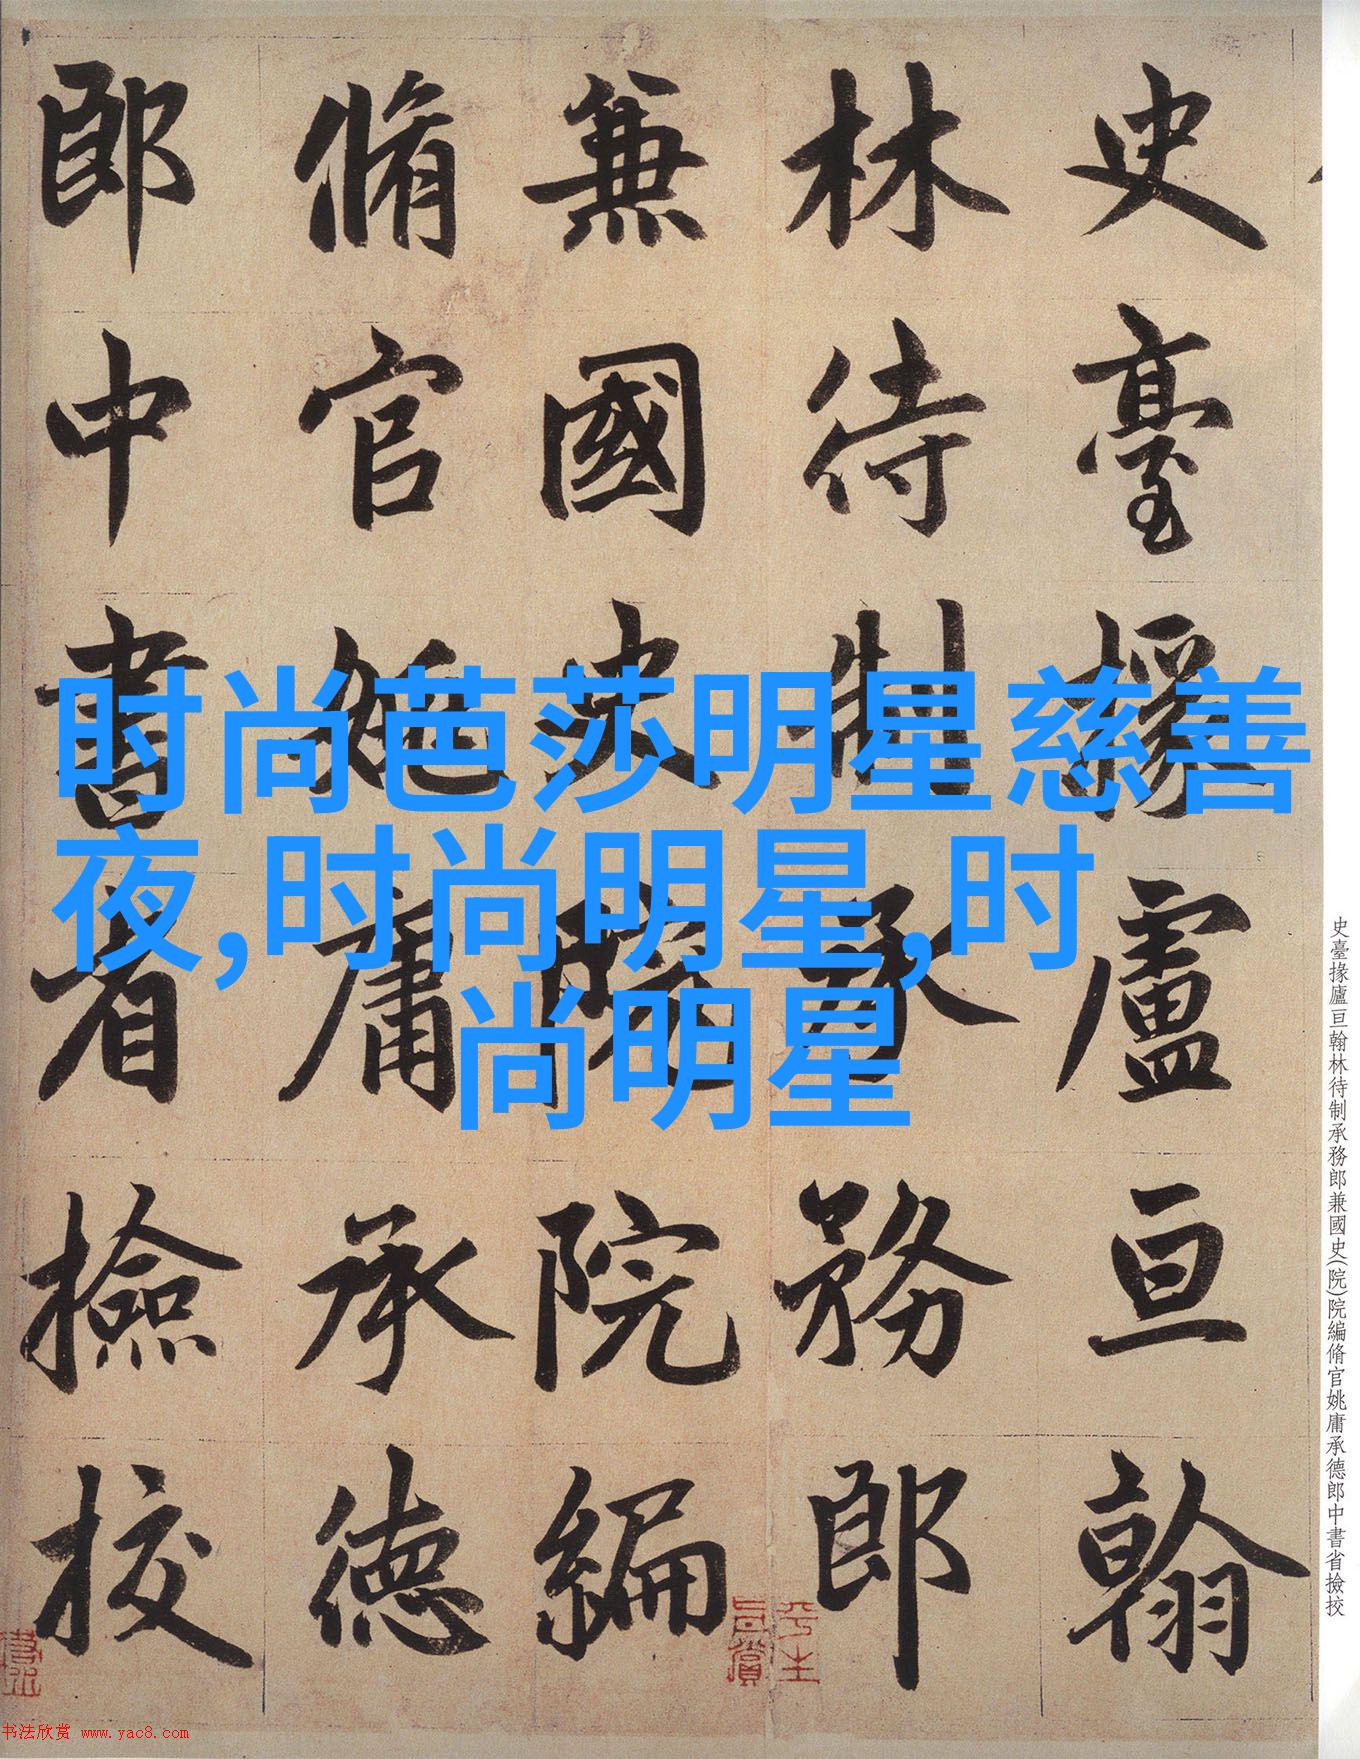 史臺掾盧亘翰
林待制承務郎
兼國史院院編
脩官姚庸承德
郎中書省撿挍
时尚芭莎明星慈善
夜,时尚明星,时
尚明星
史臺掾廬亘翰林待制承務郎兼國史(院)院編脩官姚庸承德郎中書省撿挍
书法欣赏 www.yac8.com